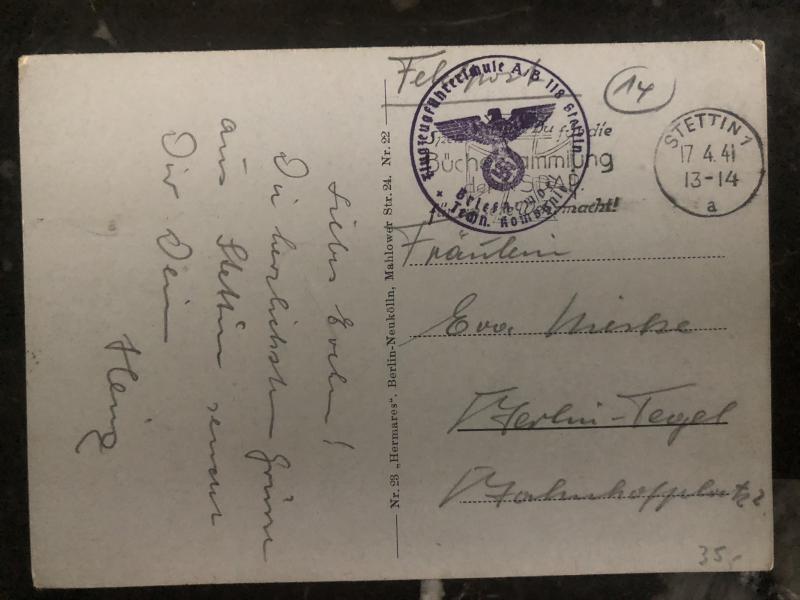 Feldpost
14
Flugzeugführerschule A/B 118 Stettin
Briefstempel
Techn. Kompanie
Du für die
Büchersammlung
der NSDAP.
für die Wehrmacht!
STETTIN 1
17.4.41
13-14
a
Fräulein
Eva
Berlin-Tegel
Bahnhofsplatz 2.
35,-
Nr. 23 „Hermares“, Berlin-Neukölln, Mahlower Str. 24. Nr. 22
Liebes Evchen!
Die herzlichsten Grüsse
aus Stettin sendet
Dir Dein
Heinz